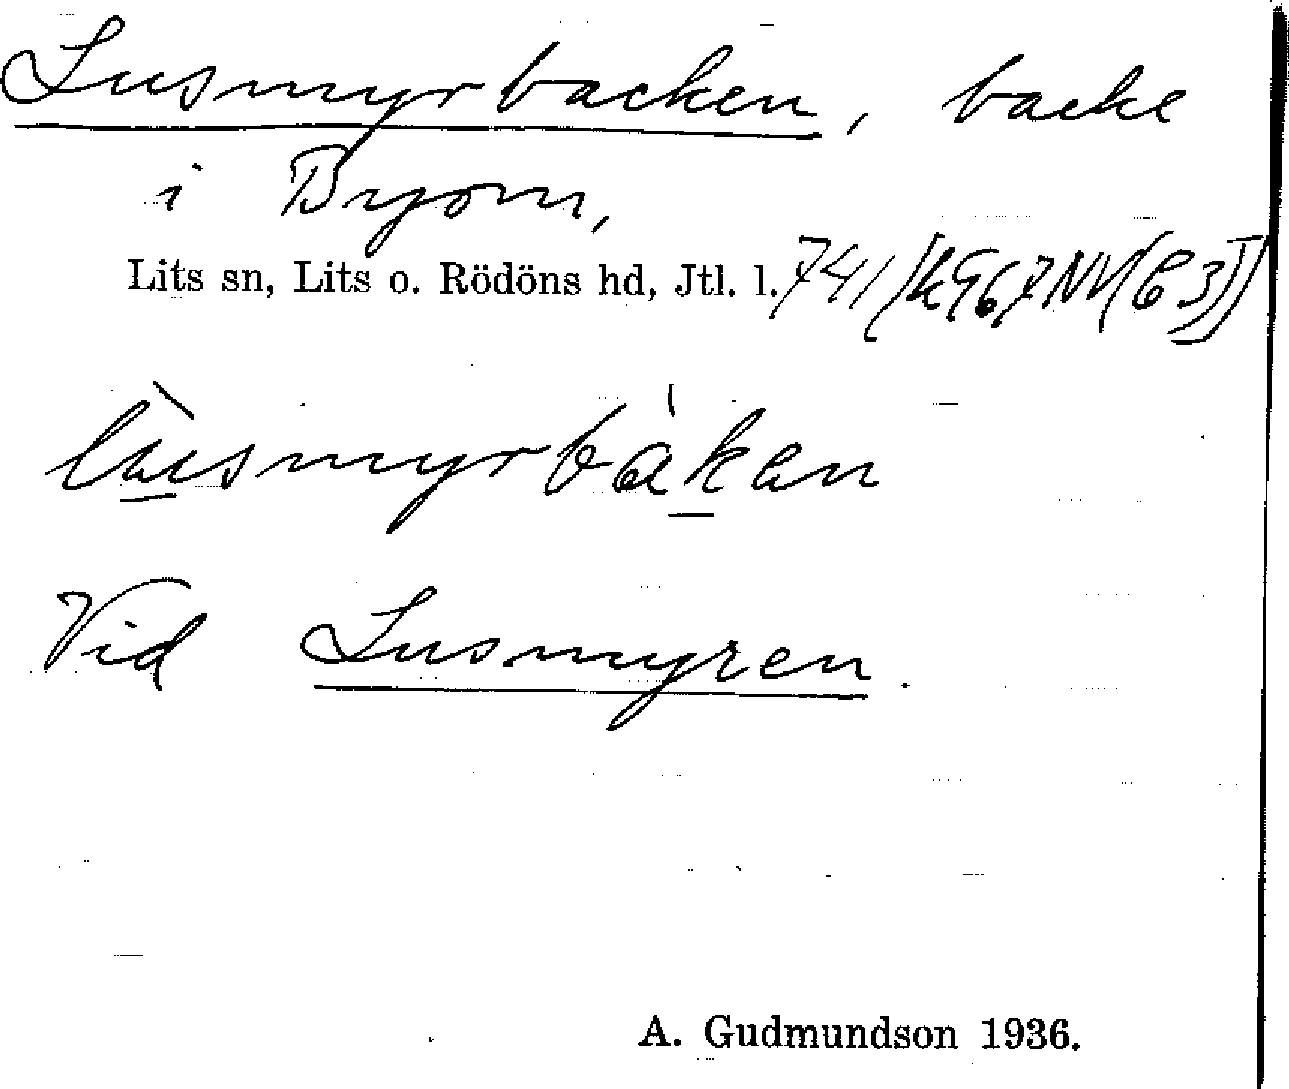 Lusmyrbacken, backe
i Bryom,
Lits sn, Lits o. Rödöns hd, Jtl. l. 741
lùsmyrbákan
Vid Lusmyren.
A. Gudmundson 1936.